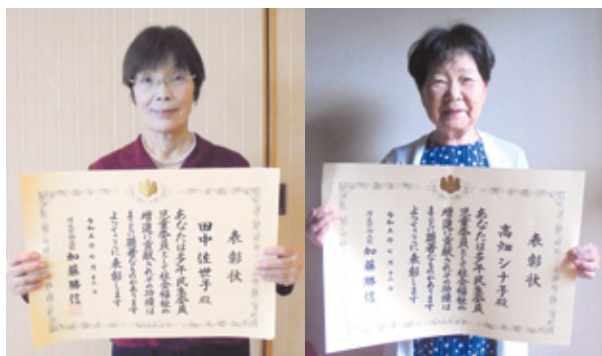 表彰状
田中 佐世子殿
あなたは多年民生委員
児童委員として社会福祉の
増進に貢献されその功績は
まことに顕著なものがあります
よってここに表彰します
厚生労働大臣 加藤勝信
表彰状
高畑 シナ子殿
あなたは多年民生委員
児童委員として社会福祉の
増進に貢献されその功績は
まことに顕著なものがあります
よってここに表彰します
厚生労働大臣 加藤勝信